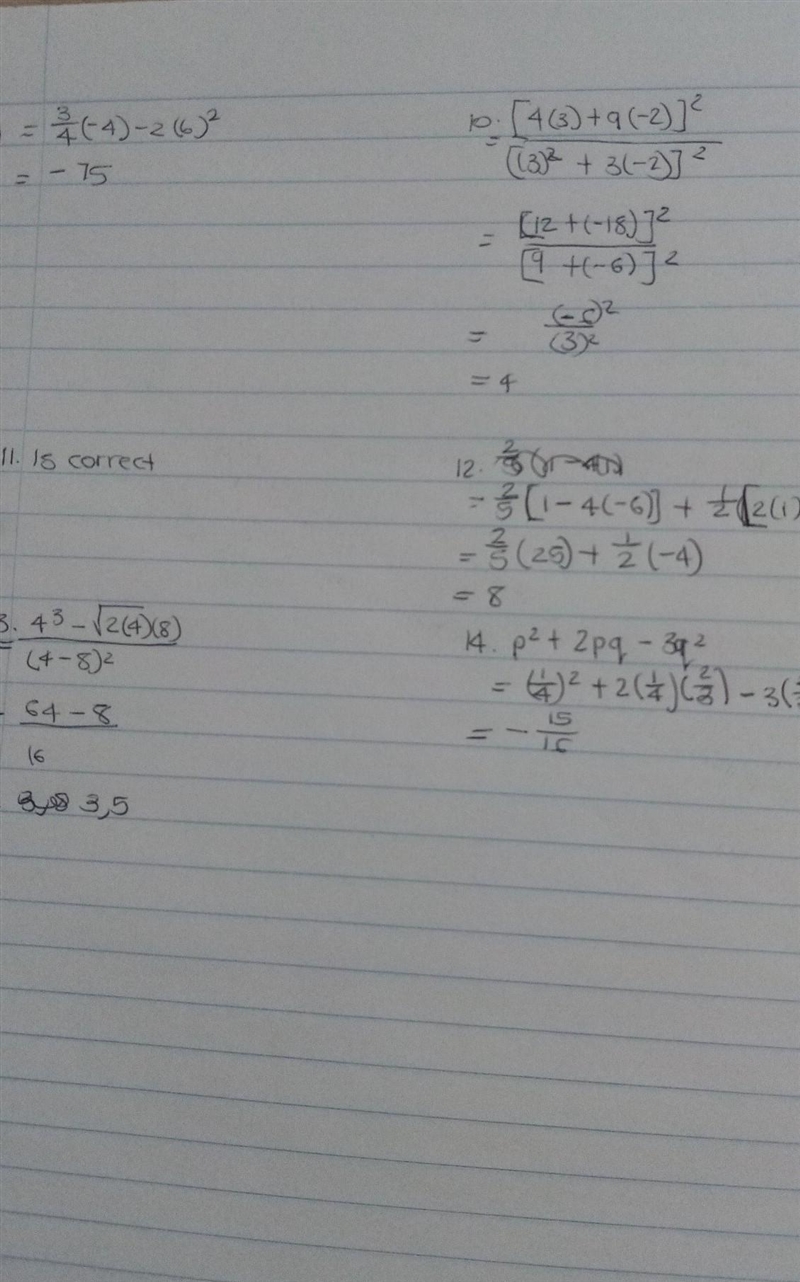 = 3/4(-4) - 2(6)²
= -75
10. = [4(3) + 9(-2)]² / [(3)² + 3(-2)]²
= [12 + (-18)]² / [9 + (-6)]²
= (-6)² / (3)²
= 4
11. Is correct
12.
= 2/5[1 - 4(-6)] + 1/2[2(1)
= 2/5(25) + 1/2(-4)
= 8
3. = 4³ - √2(4)(8) / (4 - 8)²
64 - 8 / 16
3,5
14. p² + 2pq - 3q²
= (1/4)² + 2(1/4)(2/3) - 3(
= - 15/16